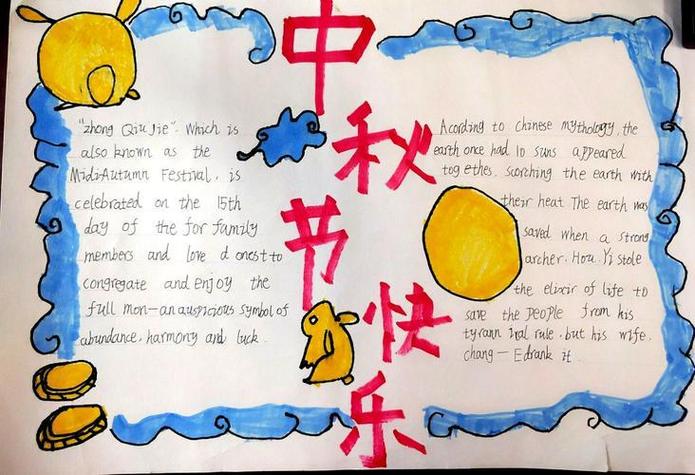 中秋节快乐
"zhong Qiu Jie". Which is
also known as the
MidiAutumn Festival, is
celebrated on the 15th
day of the for family
members and love d onest to
congregate and enjoy the
full mon—an auspicious symbol of
abundance, harmony and luck.
Acording to chinese mythology, the
earth once had 10 suns appeared
togethes. scorching the earth with
their heat The earth was
saved when a strong
archer. Hou Yi stole
the elixir of life to
save the people from his
tyrann ical rule, but his wife.
chang—Edrank it